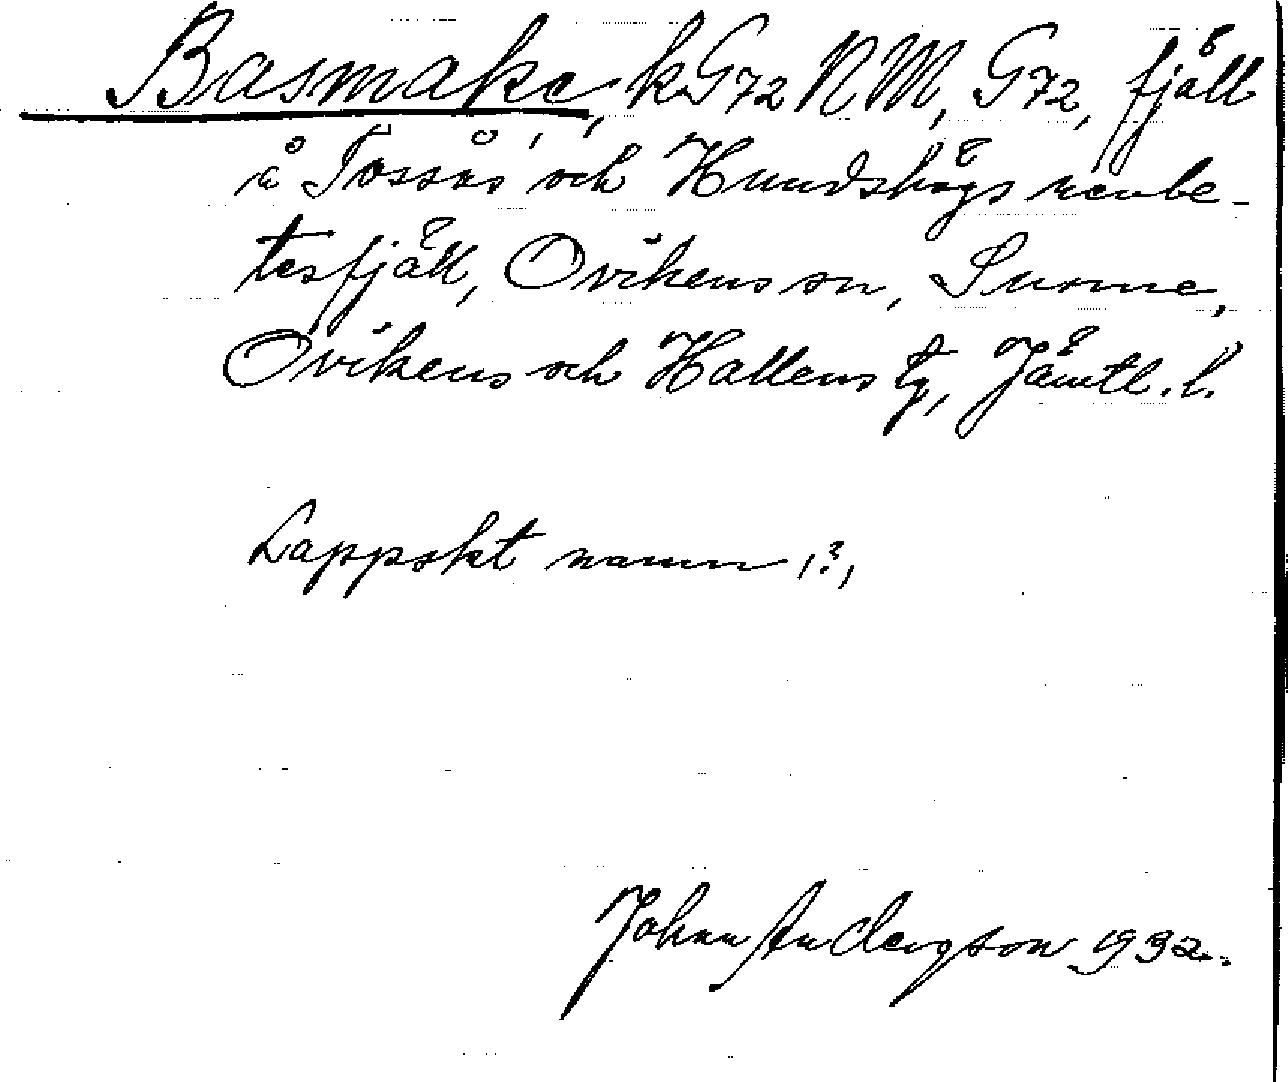 Basmake, kG72 NM, G72, fjäll
å Tossås och Hundshögs renbe-
tesfjäll, Ovikens sn, Sunne,
Ovikens och Hallens tg, Jämtl. l.
Lappskt namn ,?,
Johan Andersson 1932.